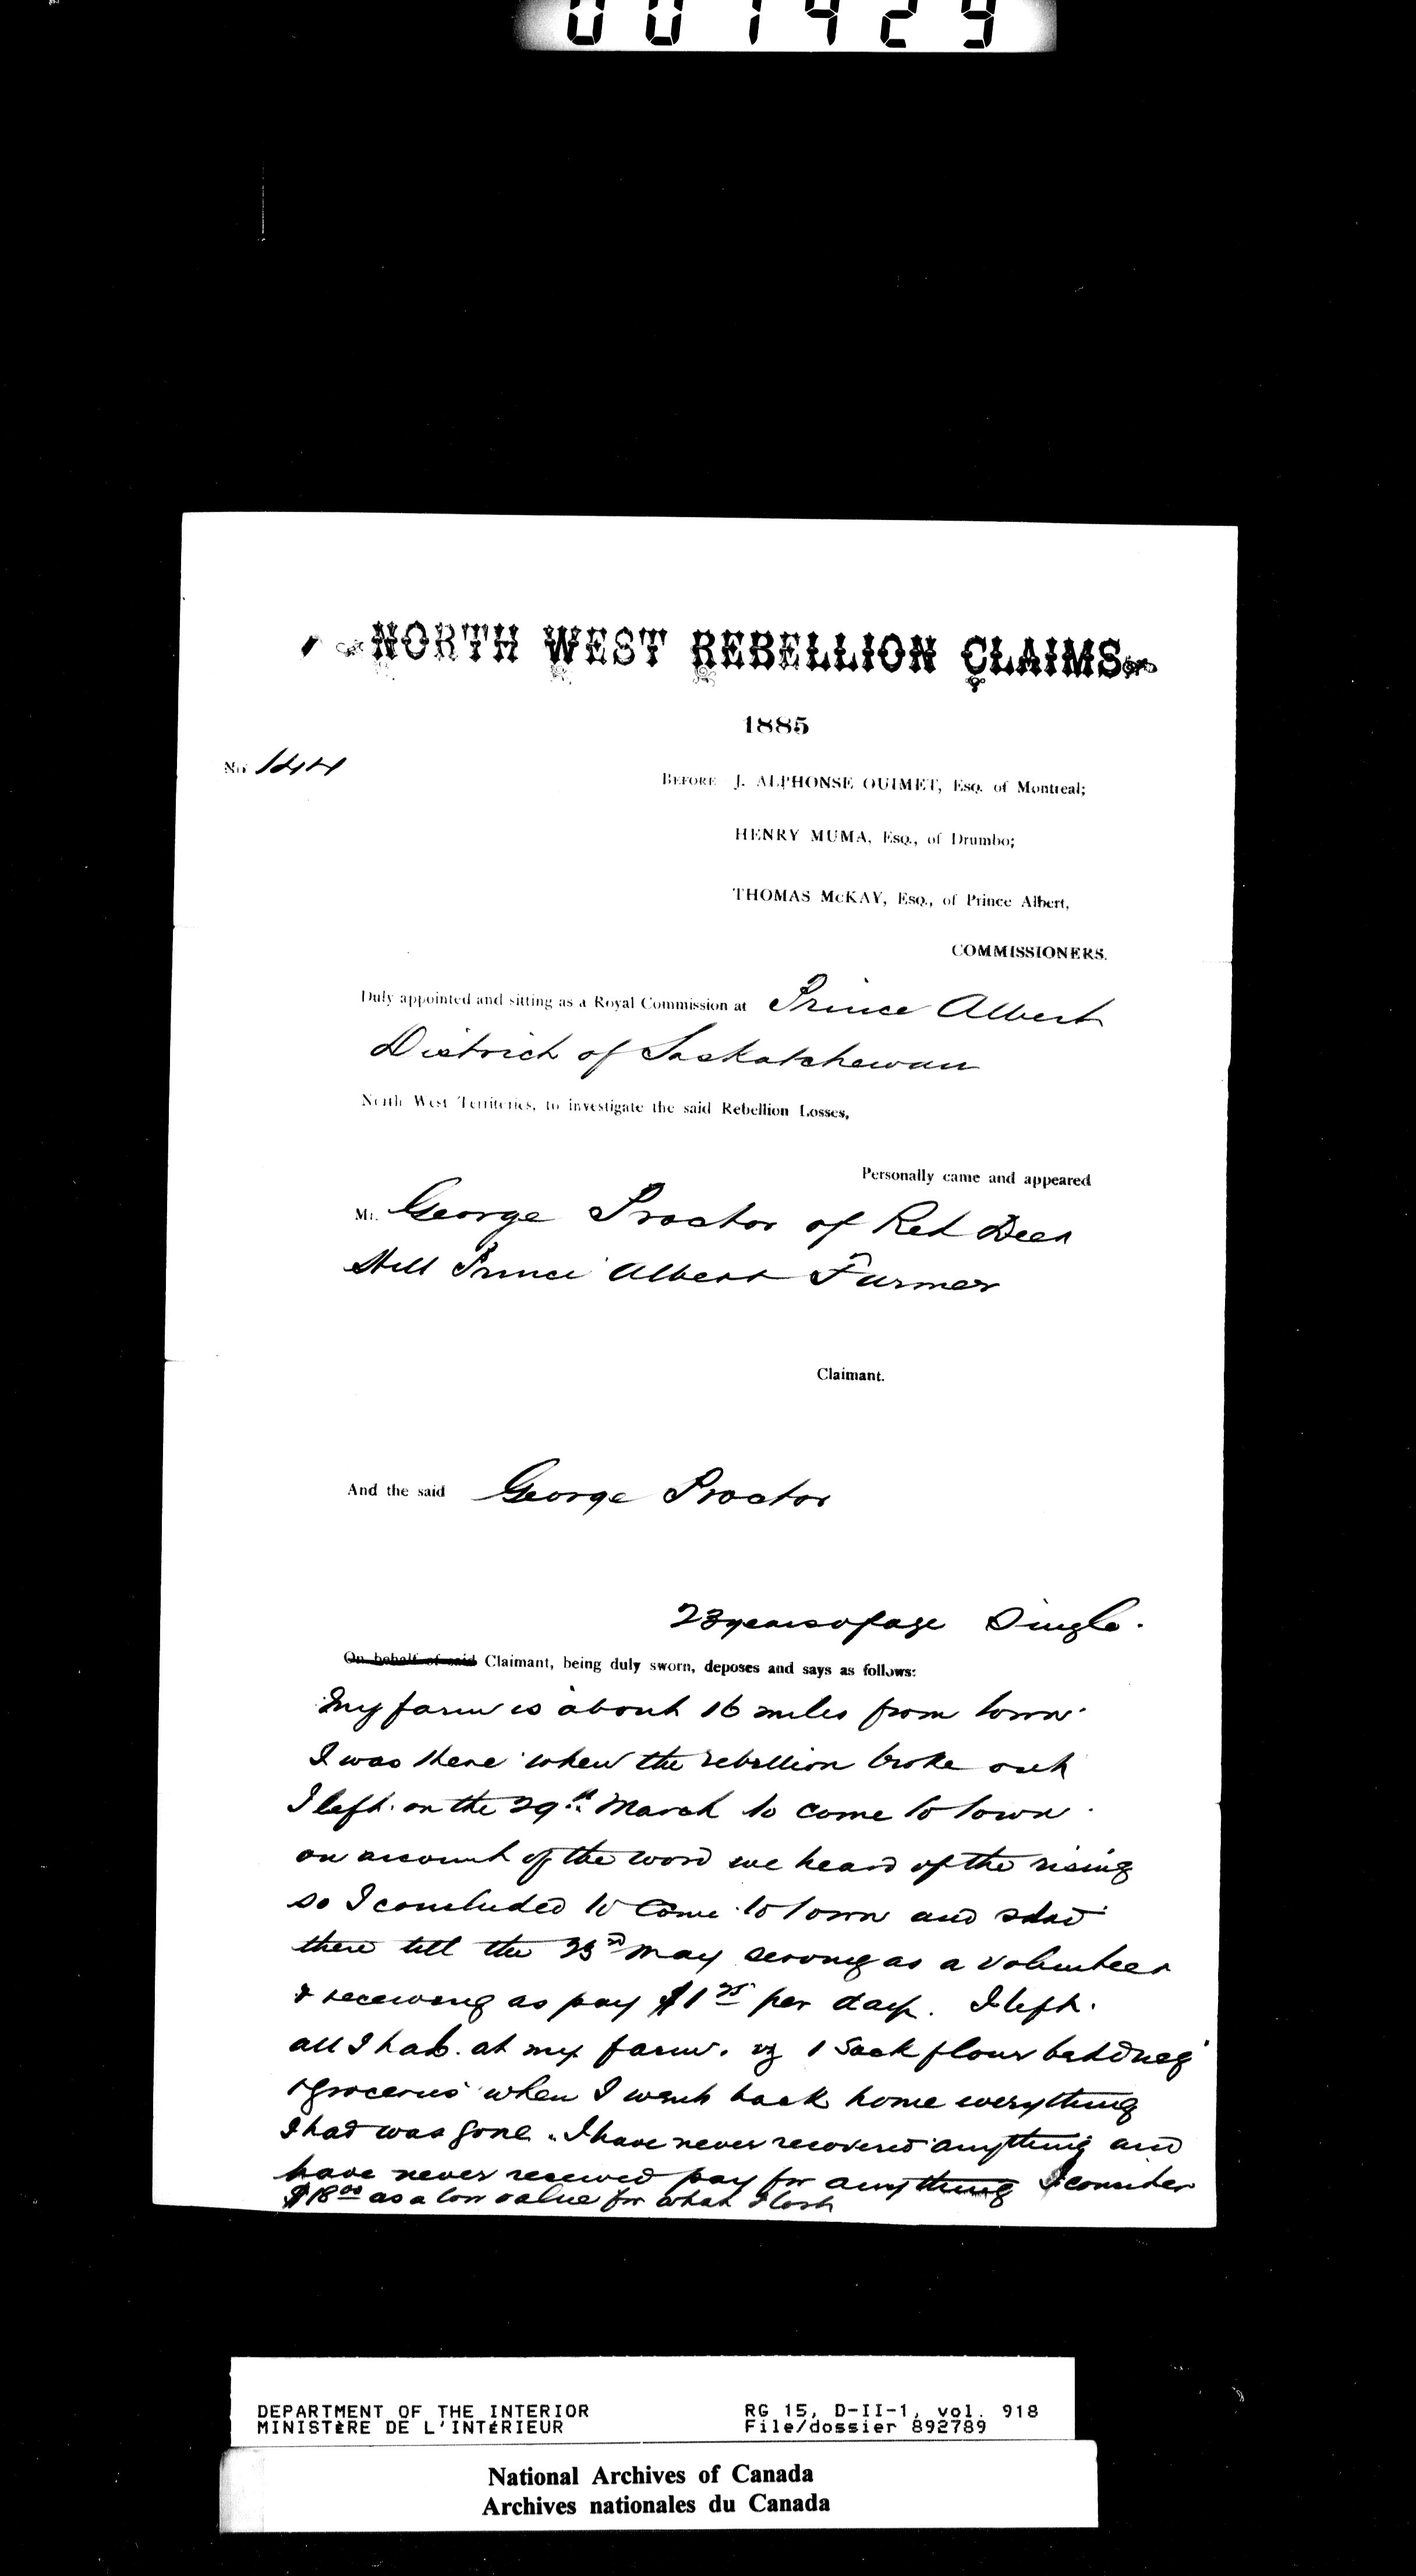 001429
NORTH WEST REBELLION CLAIMS.
1885
No 144
BEFORE J. ALPHONSE OUIMET, Esq. of Montreal;
HENRY MUMA, Esq., of Drumbo;
THOMAS McKAY, Esq., of Prince Albert,
COMMISSIONERS.
Duly appointed and sitting as a Royal Commission at Prince Albert
District of Saskatchewan
North West Territories, to investigate the said Rebellion Losses,
Personally came and appeared
Mr. George Proctor of Red Deer
Hill Prince Albert Farmer
Claimant.
And the said George Proctor
23 years of age Single.
On behalf of said Claimant, being duly sworn, deposes and says as follows:
My farm is about 16 miles from town.
I was there when the rebellion broke out
I left on the 29th March to come to town
on account of the word we heard of the rising
so I concluded to come to town and staid
there till the 23rd May serving as a volunteer
& receiving as pay $1 25 per day. I left
all I had at my farm. vz 1 Sack flour bedding
& groceries when I went back home everything
I had was gone. I have never recovered anything and
have never received pay for anything I consider
$18 00 as a low value for what I lost
DEPARTMENT OF THE INTERIOR RG 15, D-II-1, vol. 918
MINISTÈRE DE L'INTÉRIEUR File/dossier 892789
National Archives of Canada
Archives nationales du Canada